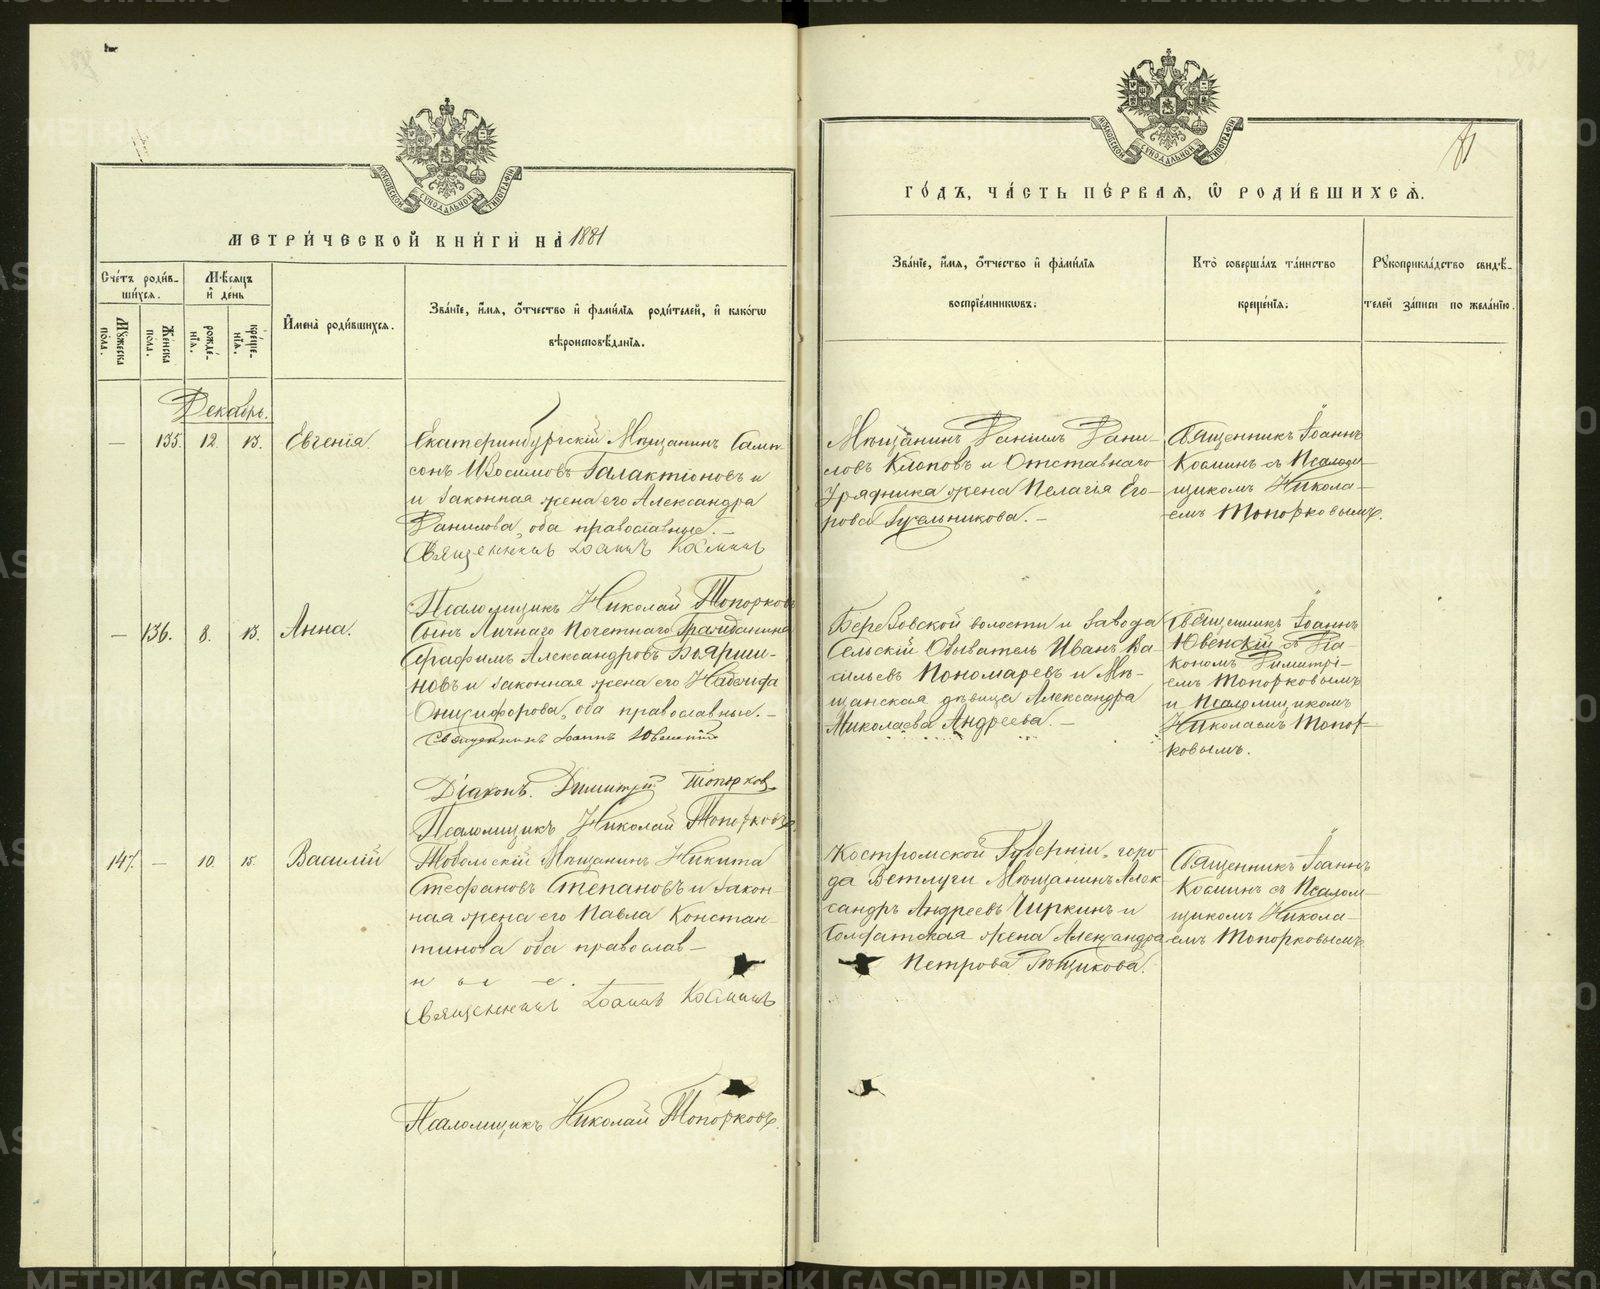 МЕТРИ́ЧЕСКОЙ КНИ́ГИ НА̀ 1881
Сче́тъ роди́в-
шихся.
Мѣ́сяцъ
и҆ день
Мꙋ́жеска
по́ла.
Же́нска
по́ла.
рожде́-
нїѧ.
креще́-
нїѧ.
И҆мена̀ роди́вшихсѧ.
Зва́нїе, и҆́мѧ, ѻ҆́тчество и҆ фами́лїѧ роди́телей, и҆ како́гѡ
вѣроисповѣ́данїѧ.
Декабрь.
— 135. 12. 13. Евгенія.
Екатеринбургскій Мѣщанинъ Самп-
сонъ Изосимовъ Галактіоновъ и
и законная жена его Александра
Данилова, оба православные. —
Священникъ Іоаннъ Косминъ
Псаломщикъ Николай Топорковъ
— 136. 8. 13. Анна.
Сынъ Личнаго Почетнаго Гражданина
Серафимъ Александровъ Бояршин-
новъ и законная жена его Надежда
Онисифорова, оба православные. —
Священникъ Іоаннъ Ювенскій
Діаконъ Димитрій Топорковъ
Псаломщикъ Николай Топорковъ
147. — 10. 15. Василій
Тобольскій Мѣщанинъ Никита
Стефановъ Степановъ и закон-
ная жена его Павла Констан-
тинова оба православ-
ные.
Священникъ Іоаннъ Косминъ
Псаломщикъ Николай Топорковъ.
81
ГО́ДЪ, ЧА́СТЬ ПЕ́РВАЯ, Ѡ҆ РОДИ́ВШИХСѦ.
Зва́нїе, и҆́мѧ, ѻ҆́тчество и҆ фами́лїѧ
воспрїе́мникѡвъ.
Кто̀ соверша́лъ та́инство
креще́нїѧ.
Рꙋкоприкла́дство свидѣ́-
телей за́писи по жела́нїю.
Мѣщанинъ Даніилъ Дани-
ловъ Клоповъ и Отставнаго
Урядника жена Пелагія Его-
рова Гусельникова. —
Священникъ Іоаннъ
Косминъ съ Псалом-
щикомъ Никола-
емъ Топорковымъ.
Березовской волости и завода
Сельскій Обыватель Иванъ Ва-
сильевъ Пономаревъ и Мѣ-
щанская дѣвица Александра
Николаева Андреева. —
Священникъ Іоаннъ
Ювенскій съ Діа-
кономъ Димитрі-
емъ Топорковымъ
и Псаломщикомъ
Николаемъ Топор-
ковымъ.
Костромской Губерніи, горо-
да Ветлуги Мѣщанинъ Алек-
сандръ Андреевъ Чиркинъ и
Солдатская жена Александра
Петрова Рѣщикова.
Священникъ Іоаннъ
Косминъ съ Псалом-
щикомъ Никола-
емъ Топорковымъ
МОСКОВСКОЙ СѴНОДАЛЬНОЙ ТИПОГРАФІИ
МОСКОВСКОЙ СѴНОДАЛЬНОЙ ТИПОГРАФІИ
METRIKI.GASO-URAL.RU